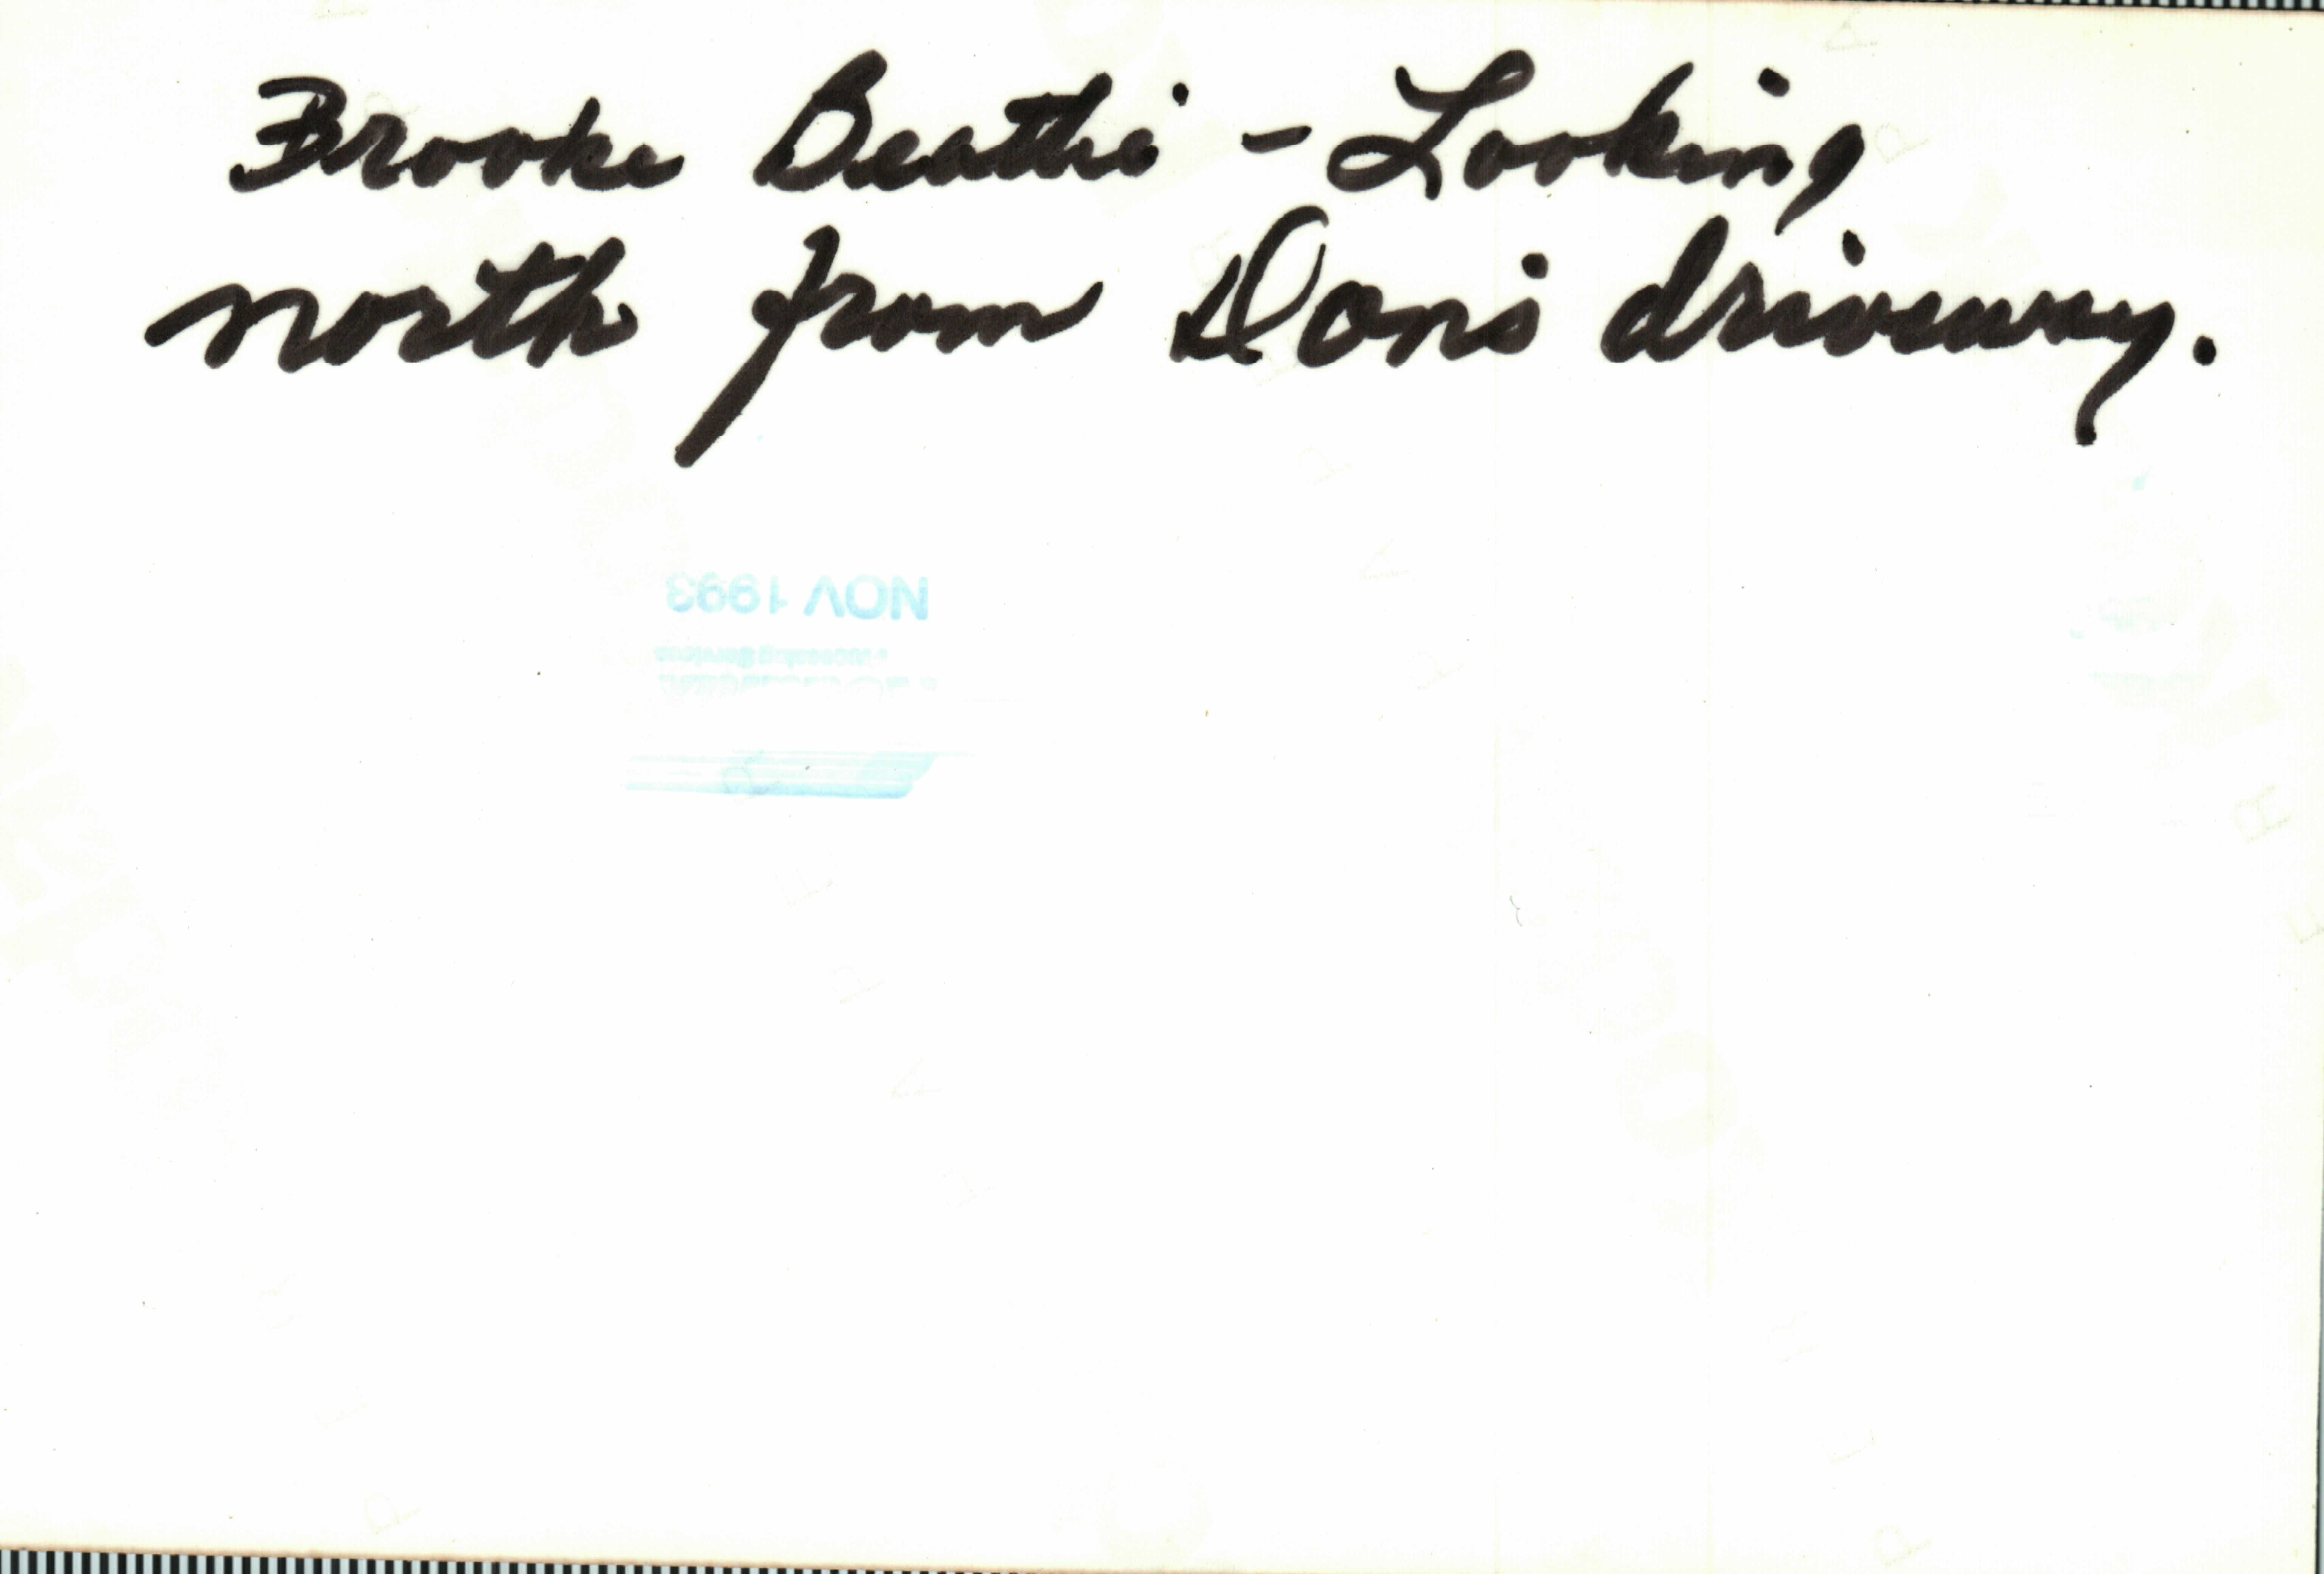 Brooke Beattie - Looking
north from Don's driveway.
NOV 1993
Processing Services